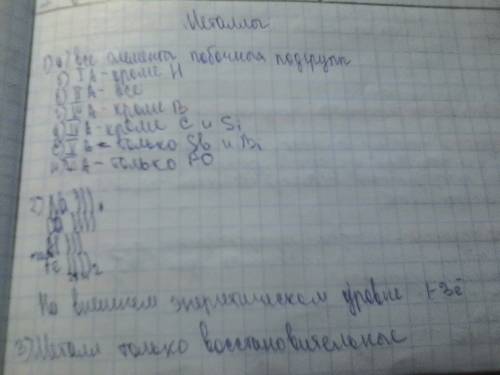 Металлы
1) а) все элементы побочных подгрупп
б) I A - кроме H
в) II A - все
г) III A - кроме B
д) IV A - кроме C и Si
е) V A - только Sb и Bi
A - только PO
2) Na )))
)))
Fe ))))2
На внешнем энергетическом уровне 1-3ē
3) Металл только восстановительные